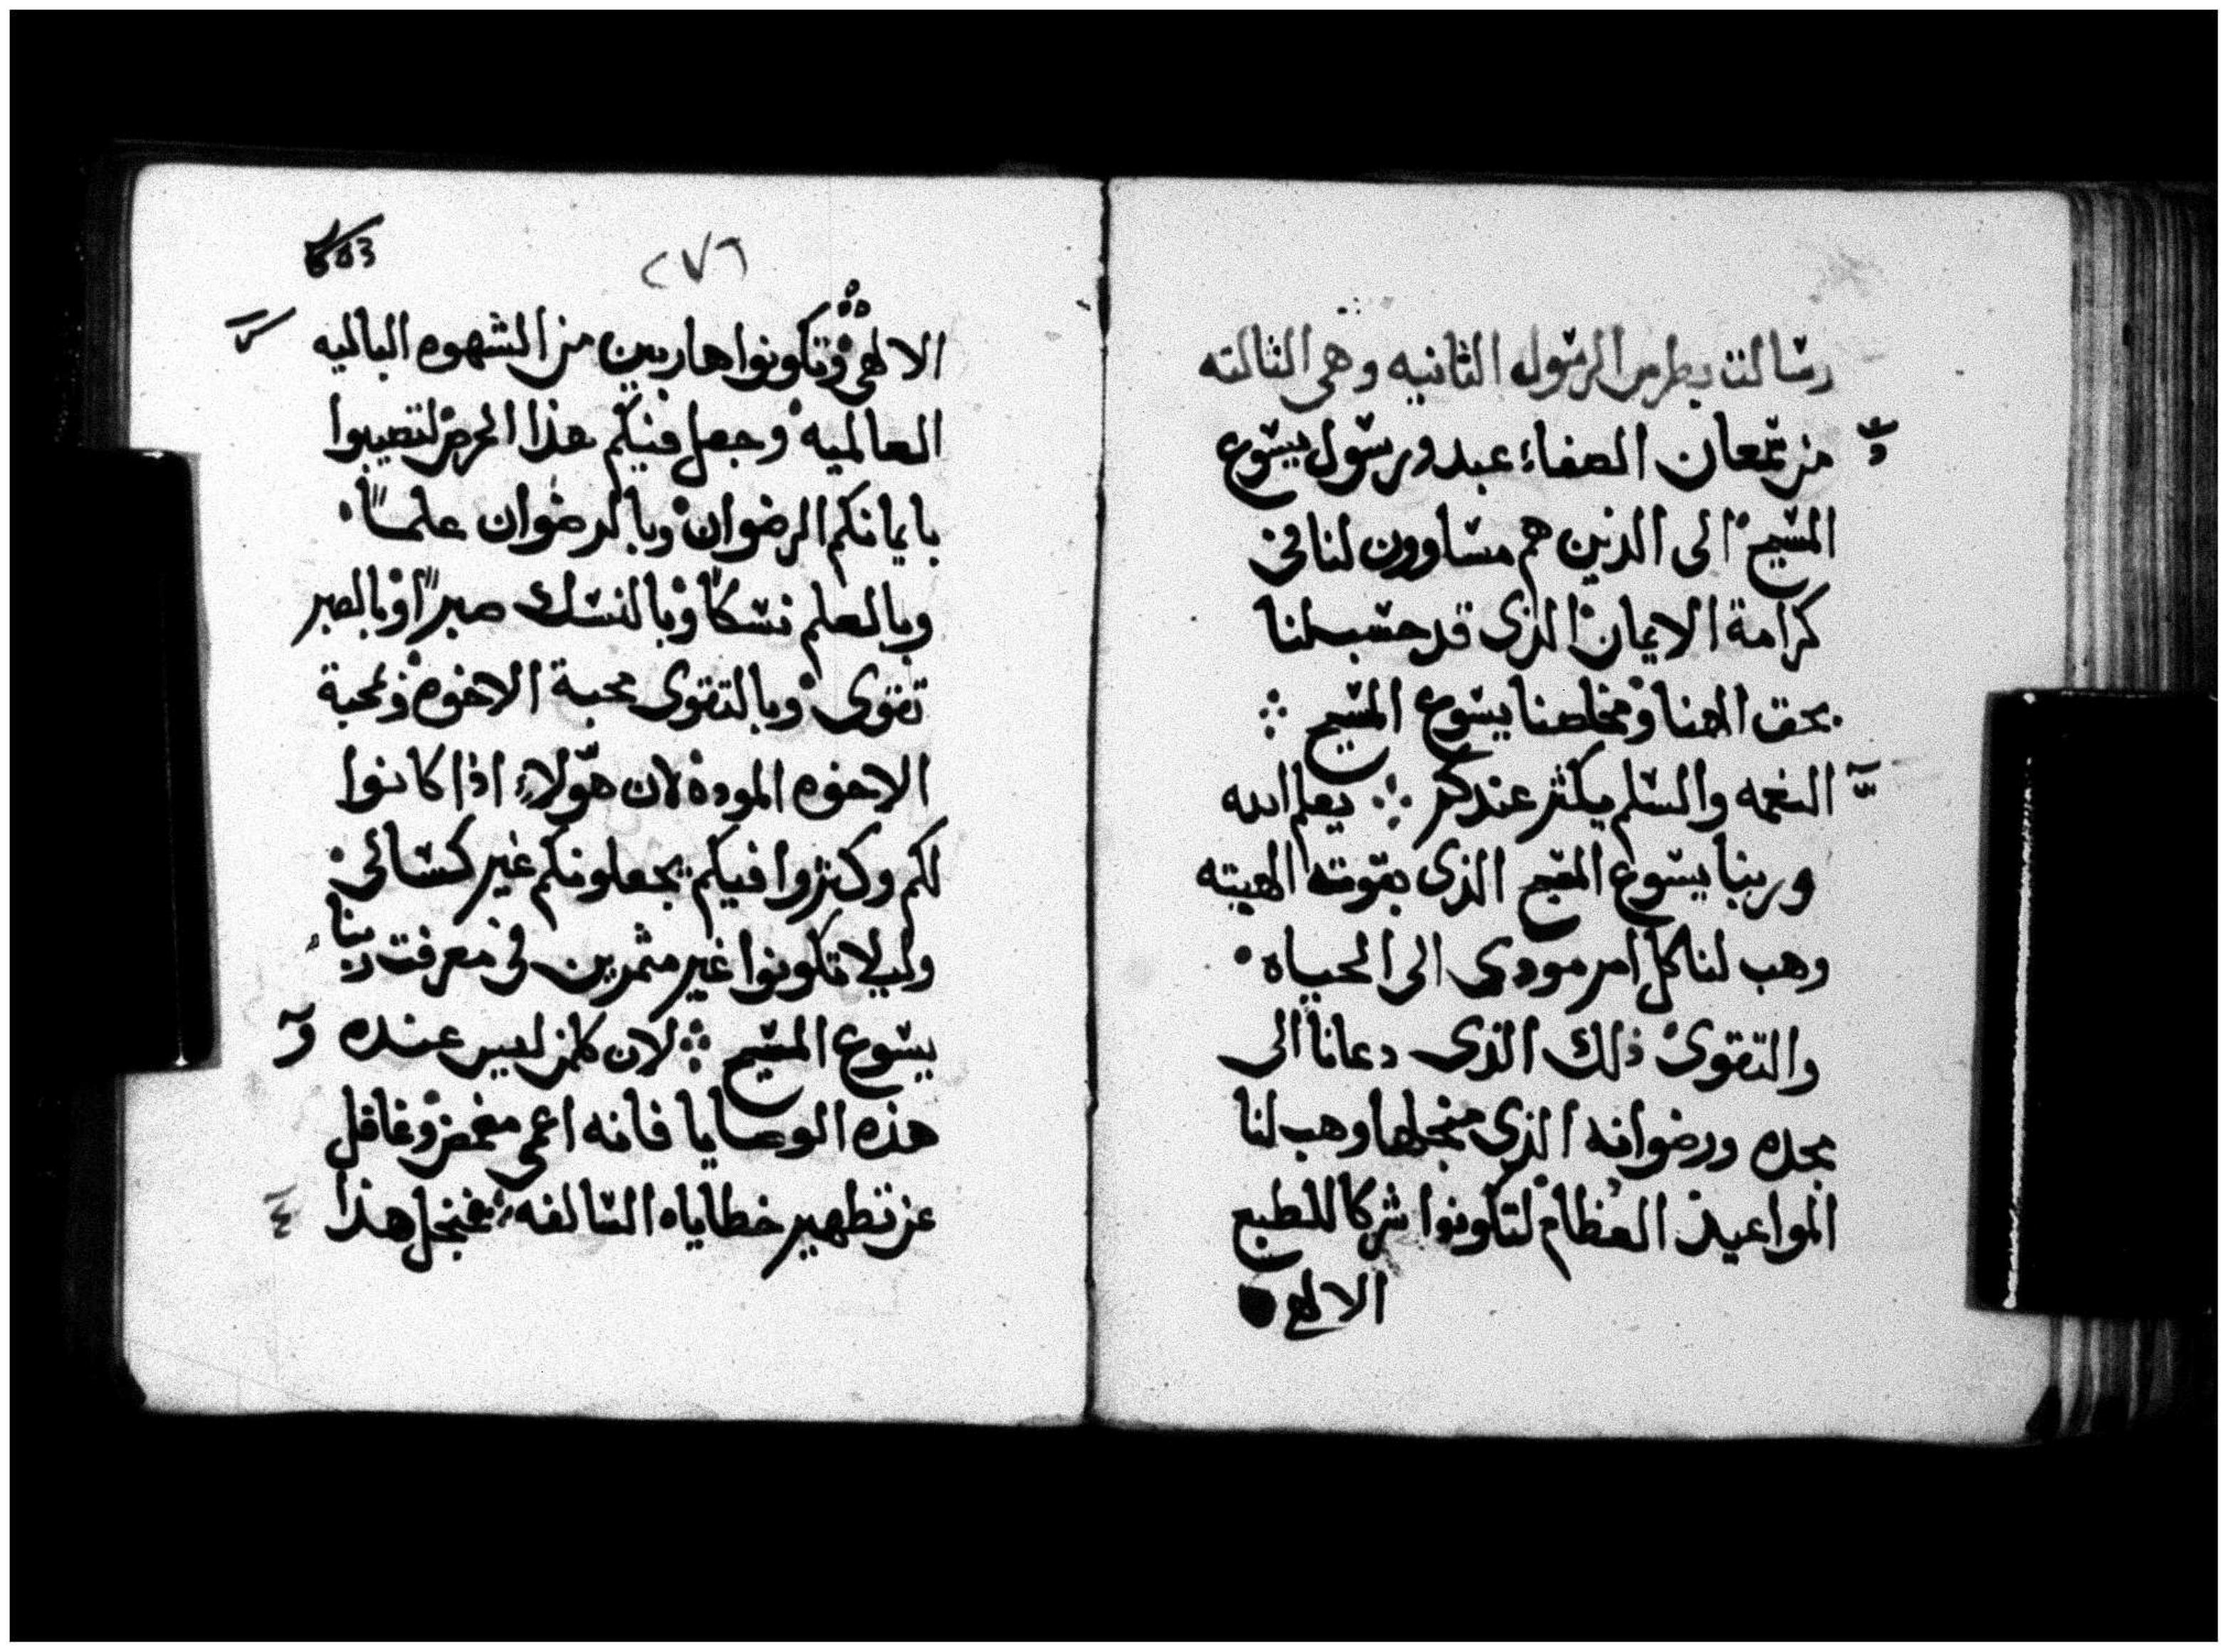 رسالت بطرس الرسول الثانيه وهى الثالثه
من شمعان الصفاء عبد ورسول يسوع
المسيح الى الذين هم مساوون لنا فى
كرامة الايمان الذى قد حسب لنا
بحق الهنا ومخلصنا يسوع المسيح
النعمه والسلم يكثر عندكم يعلم الله
وربنا يسوع المسيح الذى بقوته الهيته
وهب لنا كل امر مودى الى الحياه
والتقوى ذلك الذى دعانا الى
مجده ورضوانه الذى منجلها وهب لنا
المواعيد العظام لتكونوا شركا للطبع
الالهى
603
٢٧٦
الالهى وتكونوا هاربين من الشهوه الباليه
العالميه وجعل فيكم هذا الحرص لتصيبوا
بايمانكم الرضوان وبالرضوان علماً
وبالعلم نسكاً وبالنسك صبراً وبالصبر
تقوى وبالتقوى محبة الاخوه وبمحبة
الاخوه الموده لان هولاء اذا كانوا
لكم وكثروا فيكم يجعلونكم غير كسالى
وليلا تكونوا غير مثمرين فى معرفت ربنا
يسوع المسيح لان كلمن ليس عنده
هذه الوصايا فانه اعمى مغمض وغافل
عن تطهير خطاياه السالفه فمنجل هذا